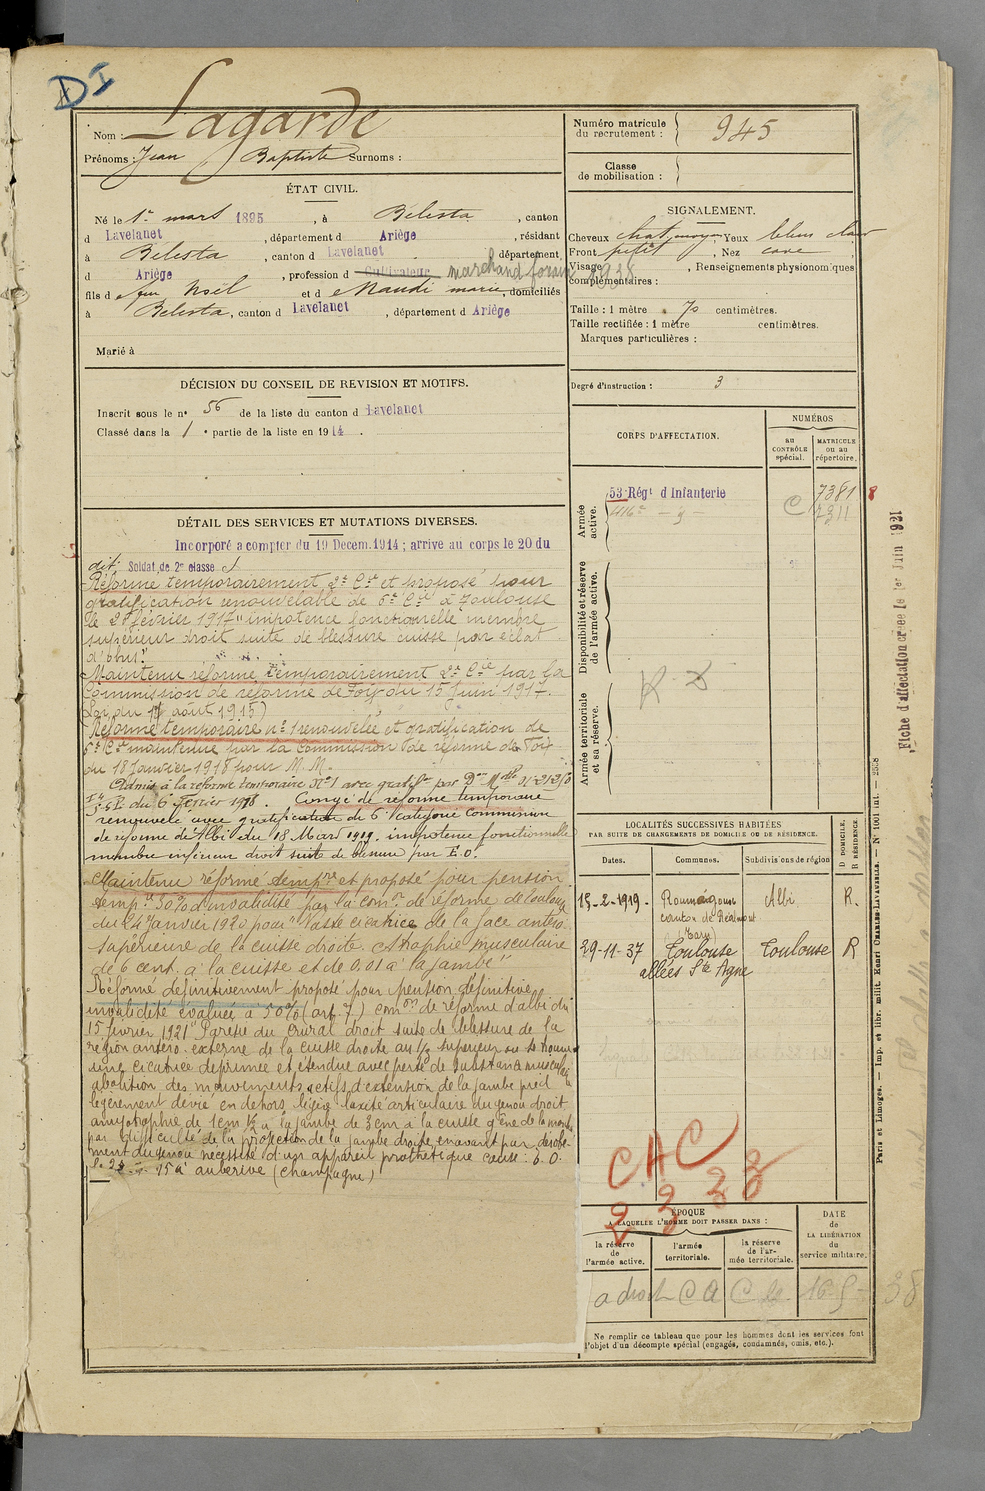 DI
Nom : Lagarde
Prénoms : Jean Baptiste Surnoms :
Numéro matricule du recrutement : 945
Classe de mobilisation :
ÉTAT CIVIL.
Né le 1er mars 1895, à Bélesta, canton
d Lavelanet, département d Ariège, résidant
à Bélesta, canton d Lavelanet département
d Ariège, profession d Cultivateur marchand forain 1938
fils de feu Noël et de Naudi marie, domiciliés
à Belesta, canton d Lavelanet, département d Ariège
Marié à
SIGNALEMENT.
Cheveux chat. moyen Yeux bleus clair
Front petit, Nez cave,
Visage, Renseignements physionomiques
complémentaires :
Taille : 1 mètre 70 centimètres.
Taille rectifiée : 1 mètre centimètres.
Marques particulières :
Degré d'instruction : 3
DÉCISION DU CONSEIL DE REVISION ET MOTIFS.
Inscrit sous le n° 56 de la liste du canton d Lavelanet
Classé dans la 1e partie de la liste en 1914.
DÉTAIL DES SERVICES ET MUTATIONS DIVERSES.
Incorporé a compter du 19 Décem. 1914 ; arrivé au corps le 20 du
dit. Soldat de 2e classe
Réformé temporairement 2e Cie et proposé pour
gratification renouvelable de 6e Cie à Toulouse
le 28 février 1917 "impotence fonctionnelle membre
supérieur droit suite de blessure cuisse par éclat
d'obus."
Maintenu réformé temporairement 2e Cie par la
Commission de réforme de Foix du 15 Juin 1917.
(Loi du 17 août 1915)
Réforme temporaire n° 1 renouvelée et gratification de
6e Cie maintenue par la Commission de réforme de Foix
du 18 Janvier 1918 pour M. M.
Admis à la réforme temporaire N° 1 avec gratifon par Don Mlle
du 6 Fevrier 1918. Congé de réforme temporaire
renouvelé avec gratification de 6e Catégorie Commission
de réforme de Albi du 18 Mars 1919. impotence fonctionnelle
membre inférieur droit suite de blessure par E.O.
Maintenu réformé tempre et proposé pour pension
tempre 50% d'invalidité par la comon de réforme de Toulouse
du 24 janvier 1920 pour "Vaste cicatrice de la face antéro
supérieure de la cuisse droite. Atrophie musculaire
de 6 cent. à la cuisse et de 0,01 à la jambe"
Réformé définitivement proposé pour pension définitive
invalidité évaluée à 50% (art. 7) comon de réforme d'albi du
15 février 1921 "Parésie du crural droit suite de blessure de la
région antéro-externe de la cuisse droite au 1/3 supérieur où se trouve
une cicatrice déprimée et étendue avec perte de substance musculaire
abolition des mouvements actifs d'extension de la jambe pied
légèrement dévié en dehors, légère laxité articulaire du genou droit,
amyotrophie de 1cm 1/2 à la jambe de 3cm à la cuisse gêne de la marche
par difficulté de la projection de la jambe droite en avant par dérobe-
ment du genou nécessité d'un appareil prothétique cause : E.O.
15 à auberive (Champagne)
CORPS D'AFFECTATION.
NUMÉROS
au CONTRÔLE spécial.
MATRICULE ou au répertoire.
Armée active.
53 Régt d'Infanterie 7381 8
416e — C 7311
Disponibilité et réserve de l'armée active.
R. D
Armée territoriale et sa réserve.
Fiche d'affectation créée le 1er Juin 1921
LOCALITÉS SUCCESSIVES HABITÉES
PAR SUITE DE CHANGEMENTS DE DOMICILE OU DE RÉSIDENCE.
D DOMICILE. R RÉSIDENCE.
Dates. Communes. Subdivisions de région
15-2-1919 Roumégoux canton de Réalmont (Tarn) Albi R.
29-11-37 Toulouse allées Ste Agne Toulouse R
CAC
2 3 3 3
ÉPOQUE
A LAQUELLE L'HOMME DOIT PASSER DANS :
la réserve de l'armée active.
l'armée territoriale.
la réserve de l'armée territoriale.
DATE de LA LIBÉRATION du service militaire.
a droit CAC
Ne remplir ce tableau que pour les hommes dont les services font
l'objet d'un décompte spécial (engagés, condamnés, omis, etc.).
Paris et Limoges. — Imp. et libr. milit. Henri CHARLES-LAVAUZELLE. — N° 1001 int. — 2538